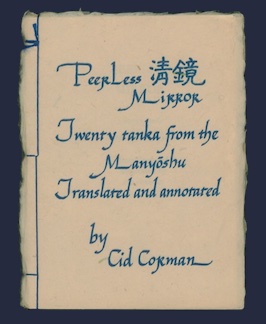 PeerLess 淸鏡
Mirror
Twenty tanka from the
Manyōshu
Translated and annotated
by
Cid Corman